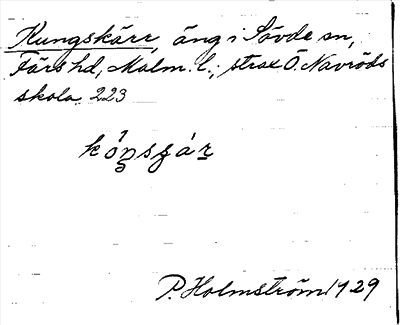 Kungskärr, äng i Sövde sn,
Färs hd, Malm. l., strax Ö. Navröds
skola. 223
P. Holmström 1929